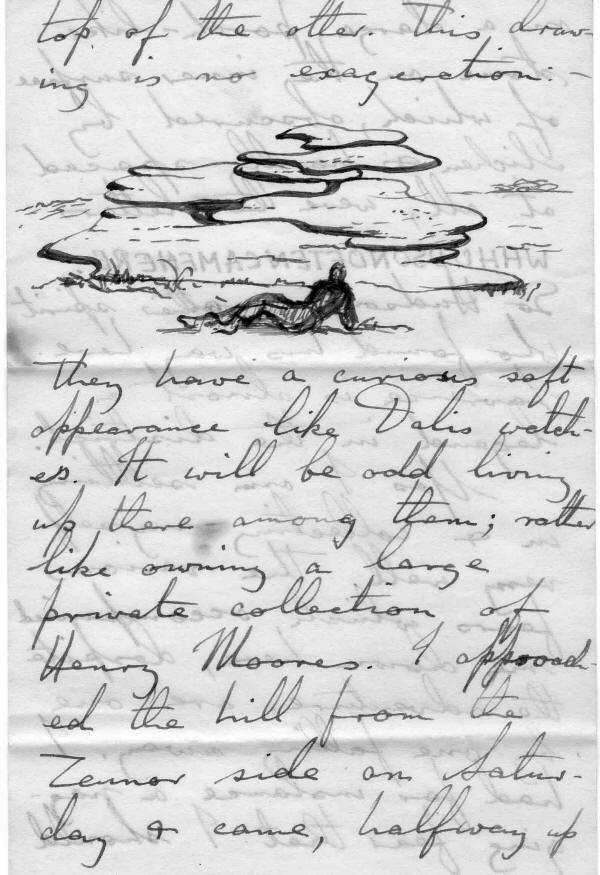 top of the other. This draw-
ing is no exageration:-
they have a curious soft
appearance like Dalis watch-
es. It will be odd living
up there among them; rather
like owning a large
private collection of
Henry Moores. I approach-
ed the hill from the
Zennor side on Satur-
day & came, halfway up